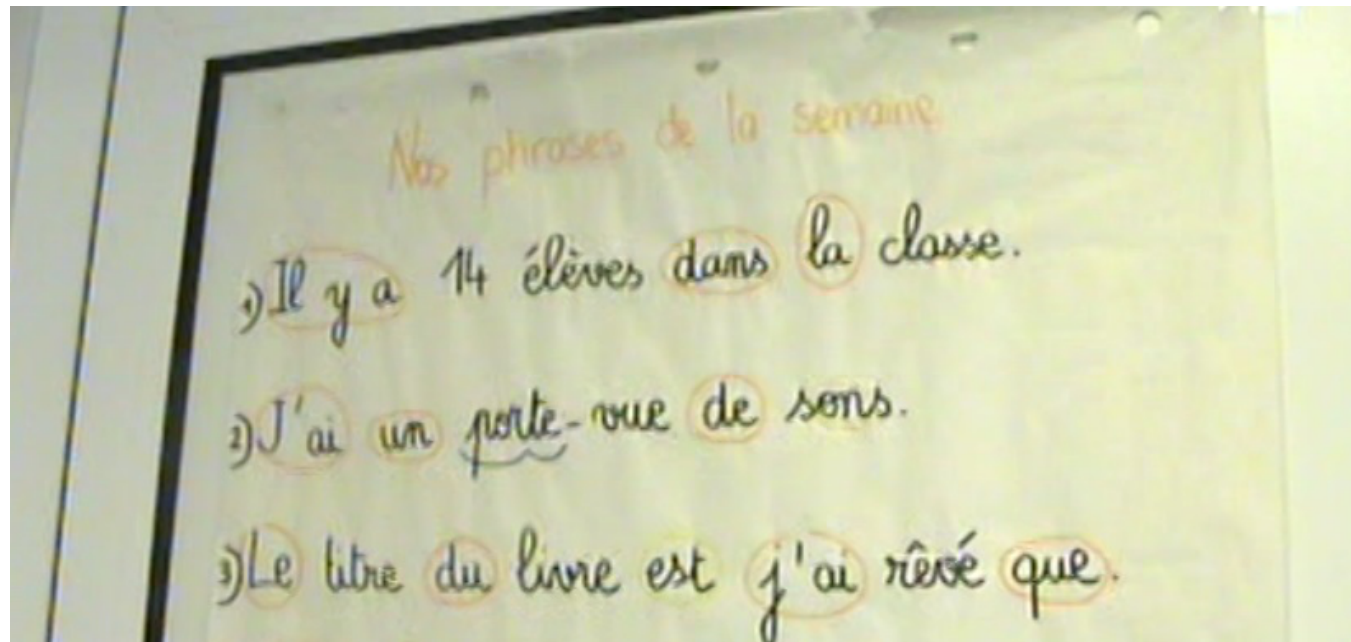 Nos phrases de la semaine
1) Il y a 14 élèves dans la classe.
2) J'ai un porte-vue de sons.
3) Le titre du livre est j'ai rêvé que.